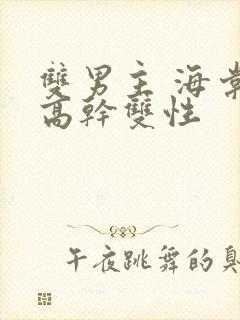 雙男主 海棠
高幹雙性
午夜跳舞的